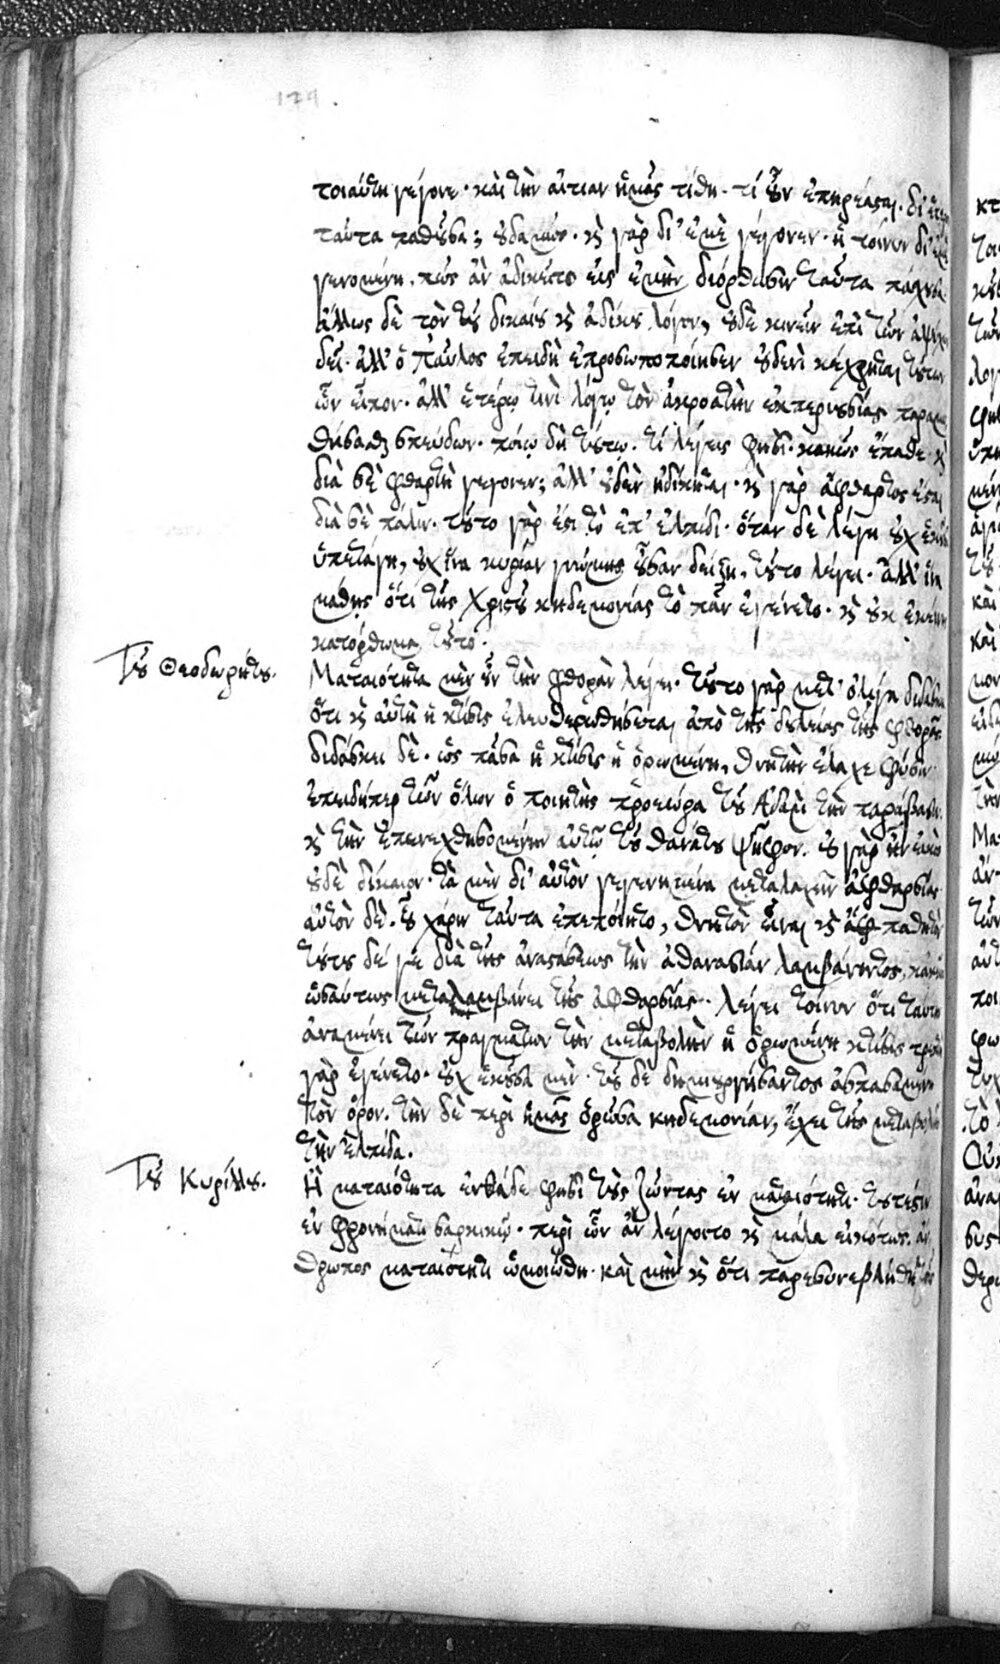 τοιαύτη γέγονε· καὶ τὴν αἰτίαν ἡμᾶς τίθη· τί οὖν ἐπηρέασται· δι' ἕτερον
ταῦτα παθοῦσα; οὐδαμῶς· καὶ γὰρ δι' ἐμὲ γέγονεν· ἡ τοίνυν δι' ἐμὲ
γενομένη, πῶς ἂν ἀδικοῖτο εἰς ἐμὴν διόρθωσιν ταῦτα πάσχουσα·
ἄλλως δὲ τὸν τοῦ δικαίου καὶ ἀδίκου λόγον, οὐδὲ κινεῖν ἐπὶ τῶν ἀψύχων
δεῖ· ἀλλ' ὁ Παῦλος ἐπειδὴ ἐπροσωποποίησεν οὐδενὶ κέχρηται τούτων
ὧν εἶπον· ἀλλ' ἑτέρῳ τινὶ λόγῳ τὸν ἀκροατὴν ἐκ περιουσίας παραμυ
θήσασθαι σπεύδων· ποίῳ δὴ τούτῳ· τί λέγεις φησί· κακῶς ἔπαθε καὶ
διὰ σὲ φθαρτὴ γέγονεν; ἀλλ' οὐδὲν ἠδίκηται· καὶ γὰρ ἄφθαρτος ἔσται
διὰ σὲ πάλιν· τοῦτο γάρ ἐστι τὸ ἐπ' ἐλπίδι· ὅταν δὲ λέγῃ οὐχ ἑκοῦσα
ὑπετάγη, οὐχ ἵνα κυρίαν γνώμης οὖσαν δείξῃ, τοῦτο λέγει· ἀλλ' ἵνα
μάθῃς ὅτι τῆς Χριστοῦ κηδεμονίας τὸ πᾶν ἐγένετο· καὶ οὐκ ἐκείνης
κατόρθωμα τοῦτο·
Τοῦ Θεοδωρήτου. Ματαιότητα μὲν οὖν τὴν φθορὰν λέγει· τοῦτο γὰρ μετ' ὀλίγα διδάσκει
ὅτι καὶ αὐτὴ ἡ κτίσις ἐλευθερωθήσεται ἀπὸ τῆς δουλείας τῆς φθορᾶς
διδάσκει δὲ· ὡς πᾶσα ἡ κτίσις ἡ ὁρωμένη, θνητὴν ἔλαχε φύσιν·
ἐπειδήπερ τῶν ὅλων ὁ ποιητὴς προεώρα τοῦ Ἀδὰμ τὴν παράβασιν·
καὶ τὴν ἐπενεχθησομένην αὐτῷ τοῦ θανάτου ψῆφον. οὐ γὰρ ἦν εἰκὸς
οὐδὲ δίκαιον· τὰ μὲν δι' αὐτὸν γεγενημένα μεταλαχεῖν ἀφθαρσίας
αὐτὸν δὲ. οὗ χάριν ταῦτα ἐπεποίητο, θνητὸν εἶναι καὶ παθητόν
τούτου δέ γε διὰ τῆς ἀναστάσεως τὴν ἀθανασίαν λαμβάνοντος, κἀκεῖνα
ὡσαύτως μεταλαμβάνει τῆς ἀφθαρσίας. λέγει τοίνυν ὅτι ταύτην
ἀναμένει τῶν πραγμάτων τὴν μεταβολὴν ἡ ὁρωμένη κτίσις τρεπτὴ
γὰρ ἐγένετο· οὐχ ἑκοῦσα μὲν· τοῦ δὲ δημιουργήσαντος ἀσπασαμένη
τὸν ὅρον. τὴν δὲ περὶ ἡμᾶς ὁρῶσα κηδεμονίαν, ἔχει τῆς μεταβολῆς
τὴν ἐλπίδα.
Τοῦ Κυρίλλου. Ἢ ματαιότητα ἐνθάδε φησὶ τοὺς ζῶντας ἐν ματαιότητι· τουτέστιν
ἐν φρονήματι σαρκικῷ· περὶ ὧν ἂν λέγοιτο καὶ μάλα εἰκότως. ἄν
θρωπος ματαιότητι ὡμοιώθη· καὶ μὴν καὶ ὅτι παρεσυνεβλήθη τοῖς